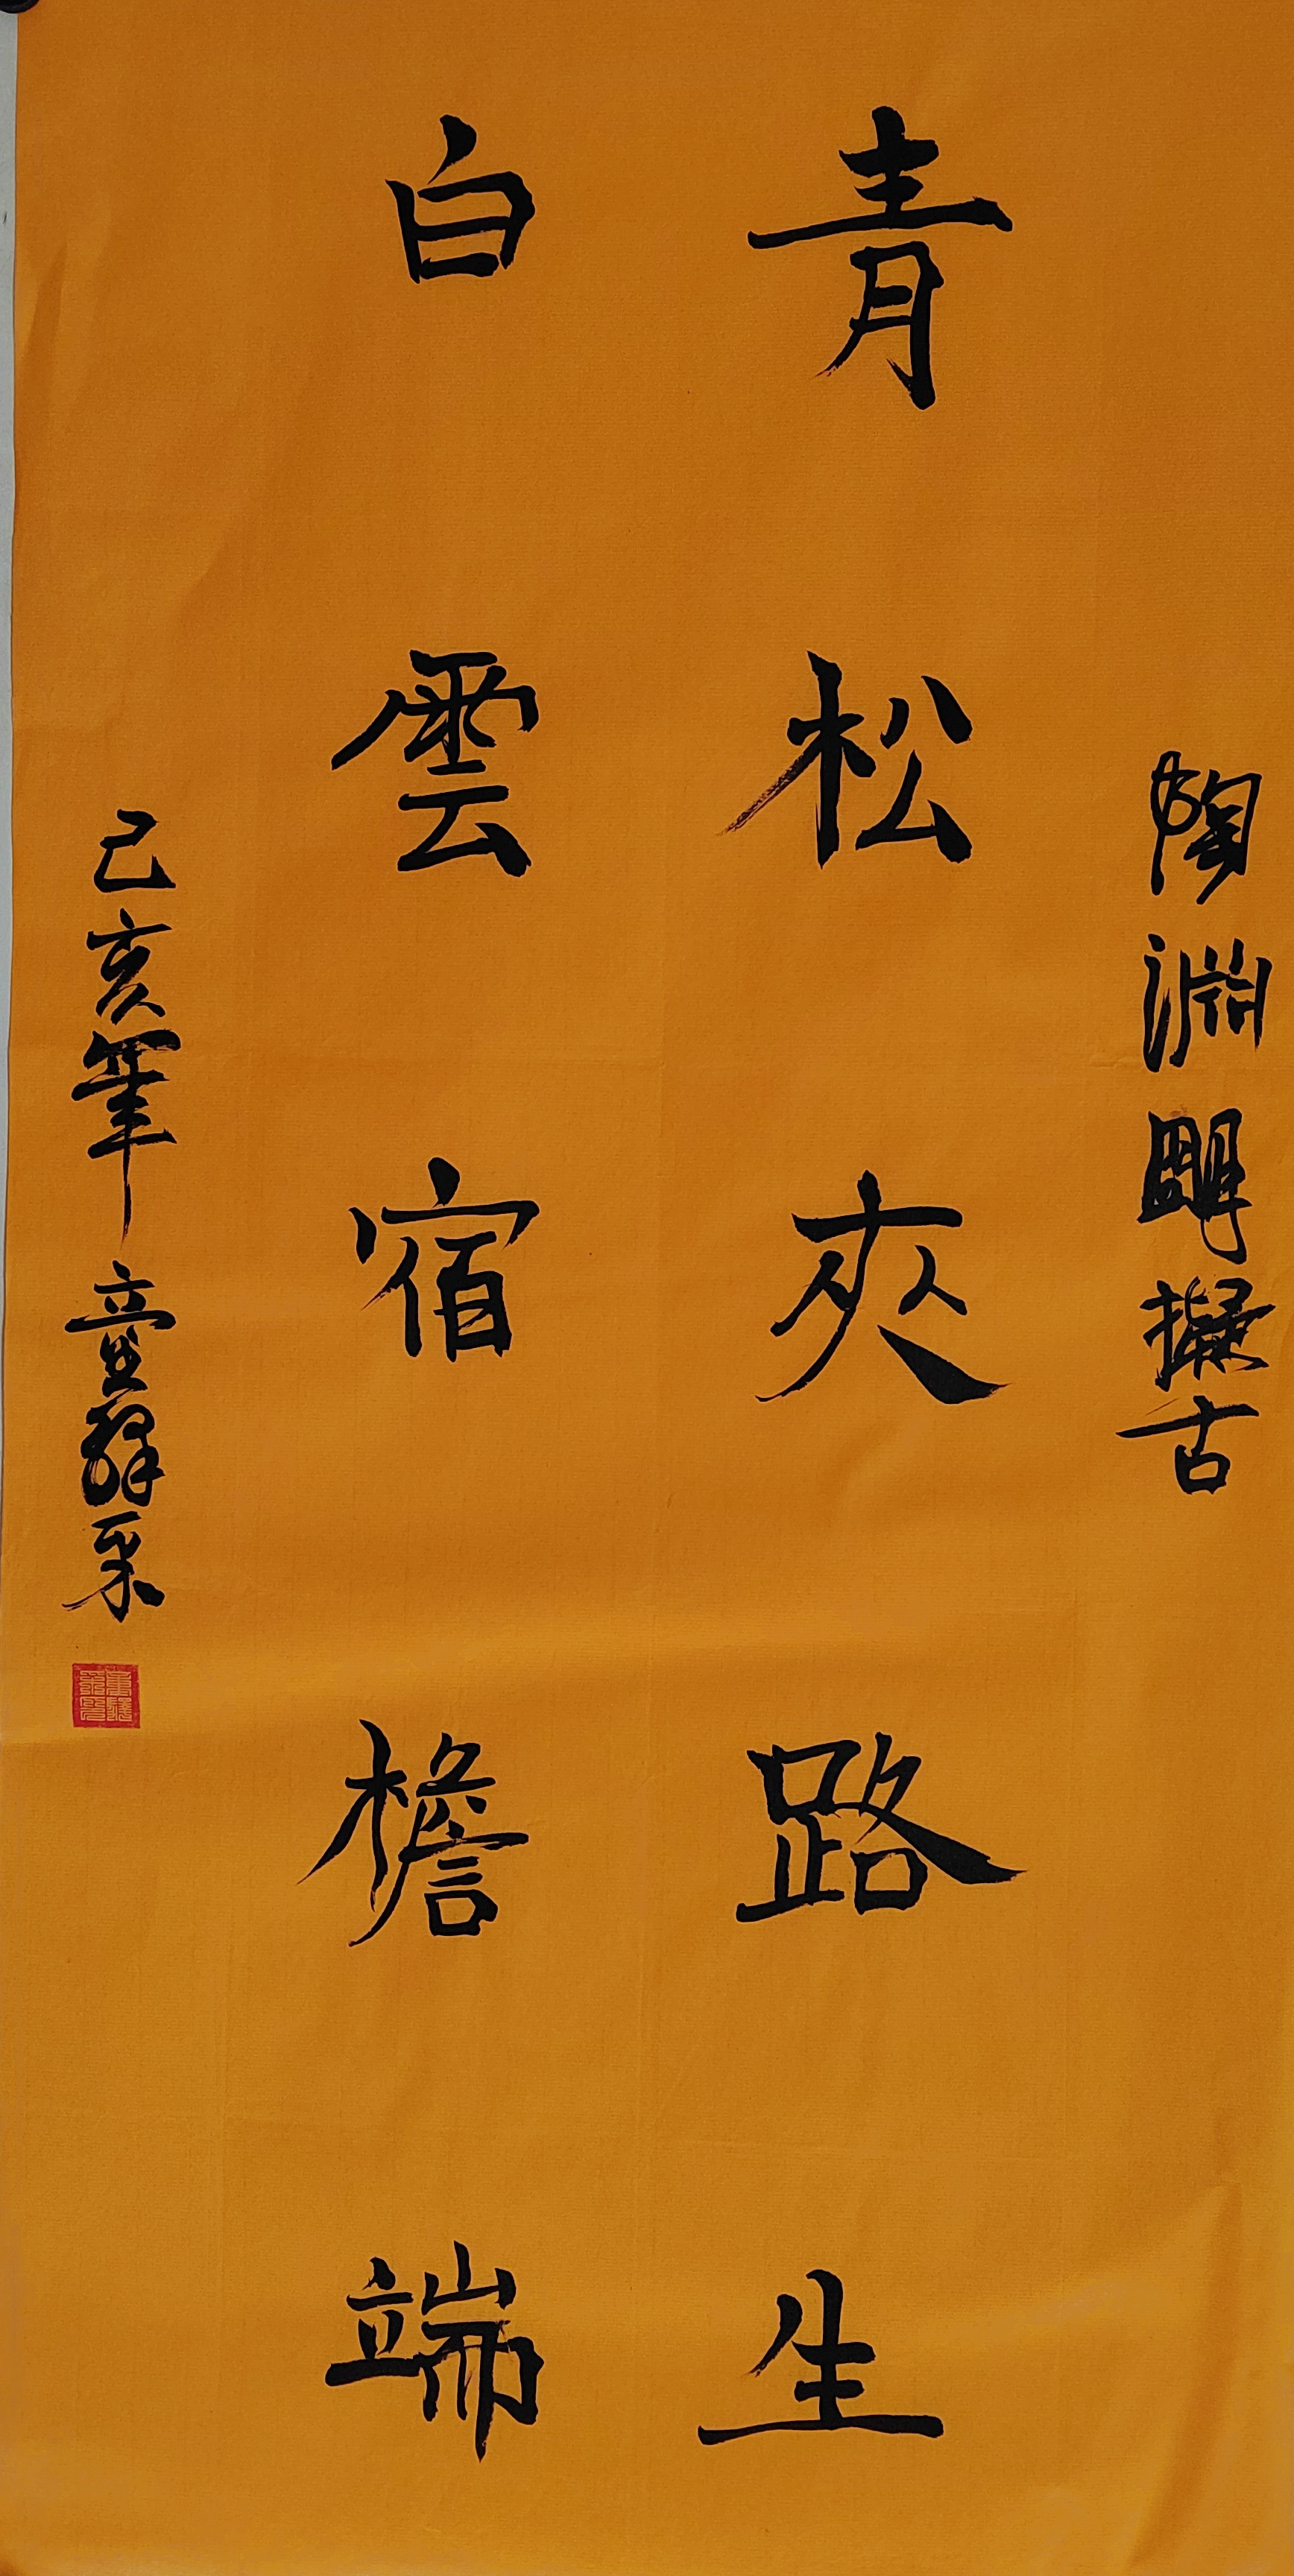 陶淵明擬古
青松夾路生
白雲宿檐端
己亥年